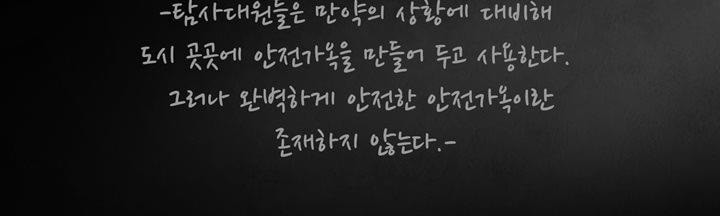 -탐사대원들은 만약의 상황에 대비해
도시 곳곳에 안전가옥을 만들어 두고 사용한다.
그러나 완벽하게 안전한 안전가옥이란
존재하지 않는다.-